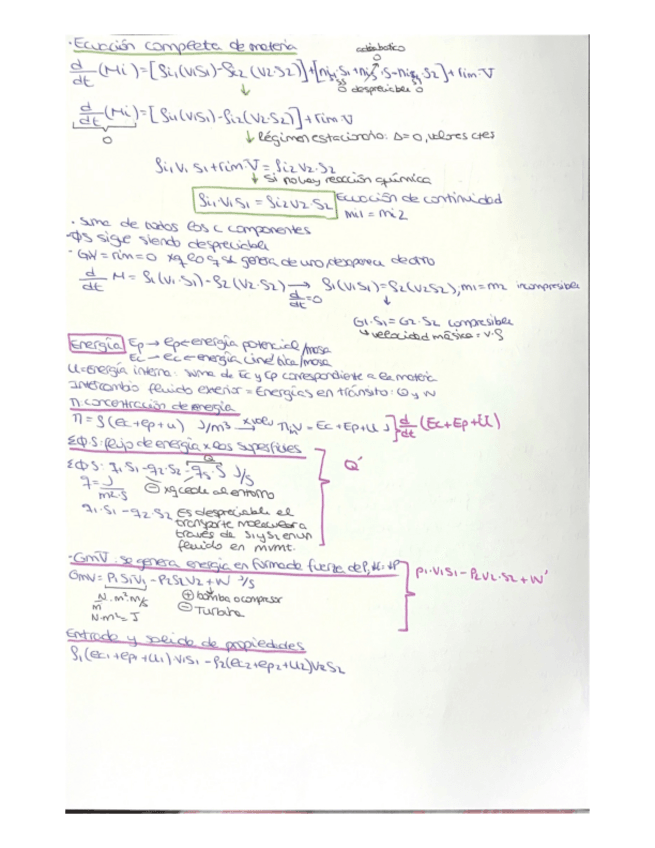 · Ecuación completa de materia
adiabático
0
d/dt (Mi) = [ρi1(V1S1) - ρi2 (V2·S2)] + [ni S1 + ni S - ni S2] + rim·V
0 despreciable 0
d/dt (Mi) = [ρi1(V1S1) - ρi2(V2·S2)] + rim·V
0
↓ Régimen estacionario: Δ=0, valores ctes
ρi1 V1 S1 + rim·V = ρi2 V2·S2
↓ Si no hay reacción química
ρi1·V1S1 = ρi2V2·S2 Ecuación de continuidad
mi1 = mi2
· Suma de todos los c componentes
-ΦS sigue siendo despreciable
- GiV = rim = 0 xq lo q se genera de uno, desaparece de otro
d/dt M = ρ1(V1·S1) - ρ2(V2·S2) → ρ1(V1S1) = ρ2(V2S2), m1 = m2 incompresible
d/dt = 0
G1·S1 = G2·S2 compresible
↳ velocidad másica = v·ρ
Energía Ep → ep = energía potencial/masa
Ec → ec = energía cinética/masa
U = energía interna: suma de Ec y Ep correspondiente a la materia
Intercambio fluido exterior = Energías en tránsito: Q y W
Π: concentración de energía
Π = ρ(ec + ep + u) J/m³ → x vol Π·V = Ec + Ep + U J } d/dt (Ec + Ep + U)
ΣΦS: flujo de energía x las superficies
Q
ΣΦS: q1S1 - q2·S2 - qs·S J/s
Q'
q = J/m²·s ⊖ xq cede al entorno
q1·S1 - q2·S2 es despreciable el
transporte molecular a
través de S1 y S2 en un
fluido en mvmt.
· GmV: se genera energía en forma de fuerza de P,
GmV = P1S1V1 - P2S2V2 + W J/s
p1·V1S1 - P2V2·S2 + W'
N/m²·m²·m/s ⊕ bomba o compresor
N·m = J ⊖ Turbina
Entrada y salida de propiedades
ρ1(ec1 + ep1 + u1)·V1S1 - ρ2(ec2 + ep2 + u2)V2S2